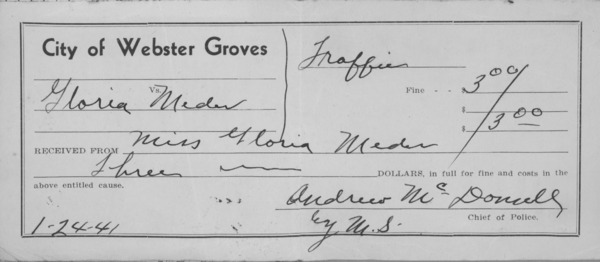 City of Webster Groves
Traffic
Vs.
Gloria Meder
Fine - - $ 3.00
$
$ 3.00
RECEIVED FROM Miss Gloria Meder
Three DOLLARS, in full for fine and costs in the
above entitled cause.
Andrew McDonnell
Chief of Police.
1-24-41
by M.S.